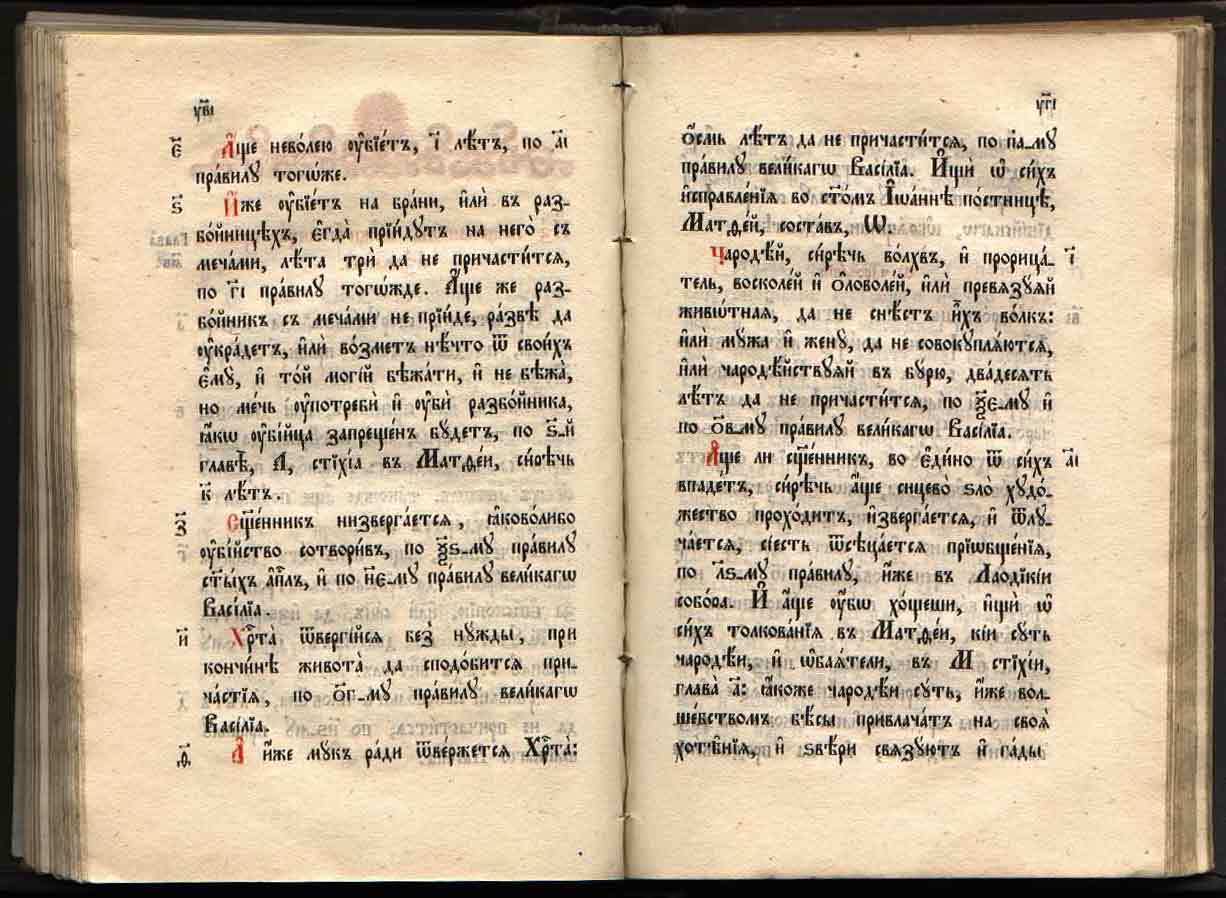 уві
є҃ А҆́ще нево́лею ᲂу҆бїе́тъ, і҃ лѣ́тъ, по а҃і
пра́вилу тогѡ́же.
ѕ҃ И҆́же ᲂу҆бїе́тъ на бра́ни, и҆лѝ въ раз-
бо́йницѣхъ, є҆гда̀ прїи́дутъ на него̀ съ
меча́ми, лѣ́та трѝ да не причасти́тсѧ,
по г҃і пра́вилу тогѡ́жде. А҆́ще же раз-
бо́йникъ съ меча́ми не прїи́де, ра́звѣ да
ᲂу҆кра́детъ, и҆лѝ во́зметъ нѣ́что ѿ свои́хъ
є҆мꙋ̀, и҆ то́й могі́й бѣжа́ти, и҆ не бѣжа̀,
но ме́чь ᲂу҆потребѝ и҆ ᲂу҆бѝ разбо́йника,
ꙗ҆́кѡ ᲂу҆бі́йца запреще́нъ бу́детъ, по ѕ҃-й
главѣ̀, А, стїхі́а въ Матѳе́и, си́рѣчь
к҃ лѣ́тъ.
з҃ Сщ҃е́нникъ низверга́етсѧ, ꙗ҆ково́либо
ᲂу҆бі́йство сотвори́въ, по ѯ҃ѕ-му пра́вилу
ст҃ы́хъ а҆пⷭ҇лъ, и҆ по н҃є-му пра́вилу вели́кагѡ
Васі́лїа.
и҃ Хрⷭ҇та̀ ѿве́ргійсѧ без̾ ну́жды, при
кончи́нѣ живота̀ да сподо́битсѧ при-
ча́стїѧ, по ѻ҃г-му пра́вилу вели́кагѡ
Васі́лїа.
ѳ҃ А и҆́же му́къ ра́ди ѿве́ржетсѧ Хрⷭ҇та̀:
угі
ѻ҆́смь лѣ́тъ да не причасти́тсѧ, по п҃а-му
пра́вилу вели́кагѡ Васі́лїа. И҆щѝ ѡ҆ си́хъ
и҆справле́нїѧ во ст҃о́мъ І҆ѡа́ннѣ по́стницѣ,
Матѳе́й, соста́въ, Ѡ.
і҃ Чародѣ́й, си́рѣчь во́лхвъ, и҆ прорица́-
тель, восколе́й и҆ ѻ҆ловоле́й, и҆лѝ превѧзу́ѧй
живѡ́тнаѧ, да не снѣ́стъ и҆́хъ во́лкъ:
и҆лѝ му́жа и҆ жену̀, да не совокуплѧ́ютсѧ,
и҆лѝ чародѣ́йствуѧй въ бу́рю, два́десѧть
лѣ́тъ да не причасти́тсѧ, по ѯ҃є-му и҆
по ѻ҃в-му пра́вилу вели́кагѡ Васі́лїа.
а҃і А҆́ще ли сщ҃е́нникъ, во є҆ди́но ѿ си́хъ
впаде́тъ, си́рѣчь а҆́ще сицево̀ ѕло̀ худо́-
жество прохо́дитъ, и҆зверга́етсѧ, и҆ ѿлу-
ча́етсѧ, сїе́сть ѿсѣца́етсѧ прїѡбще́нїѧ,
по л҃ѕ-му пра́вилу, и҆́же въ Лаѻді́кїи
собо́ра. И҆ а҆́ще ᲂу҆́бѡ хо́щеши, и҆щѝ ѡ҆
си́хъ толкова́нїѧ въ Матѳе́и, кі́и су́ть
чародѣ́и, и҆ ѡ҆баѧ́тели, въ М стїхі́и,
глава̀ а҃: ꙗ҆́коже чародѣ́и су́ть, и҆́же вол-
ше́бствомъ бѣ́сы привлача́тъ на своѧ̀
хотѣ́нїѧ, и҆ ѕвѣ́ри свѧзу́ютъ и҆ га́ды